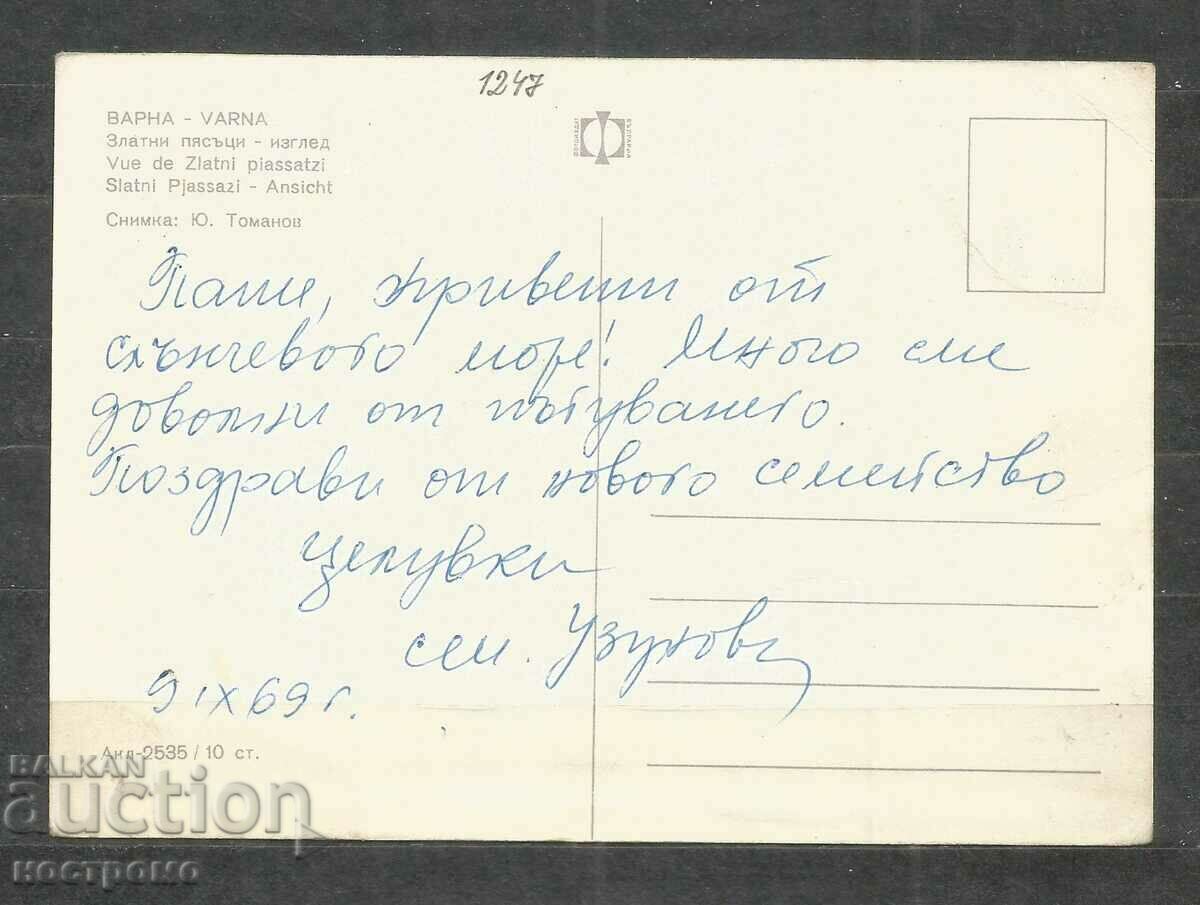 1247
ВАРНА - VARNA
Златни пясъци - изглед
Vue de Zlatni piassatzi
Slatni Pjassazi - Ansicht
Снимка: Ю. Томанов
БЪЛГАРИЯ
ФОТОИЗДАТ
Папи, привети от
слънчевото море! Много сме
доволни от пътуването.
Поздрави от новото семейство
Целувки
сем. Узунови
9 IX 69 г.
Акл-2535 / 10 ст.
BALKAN
auction
костромо